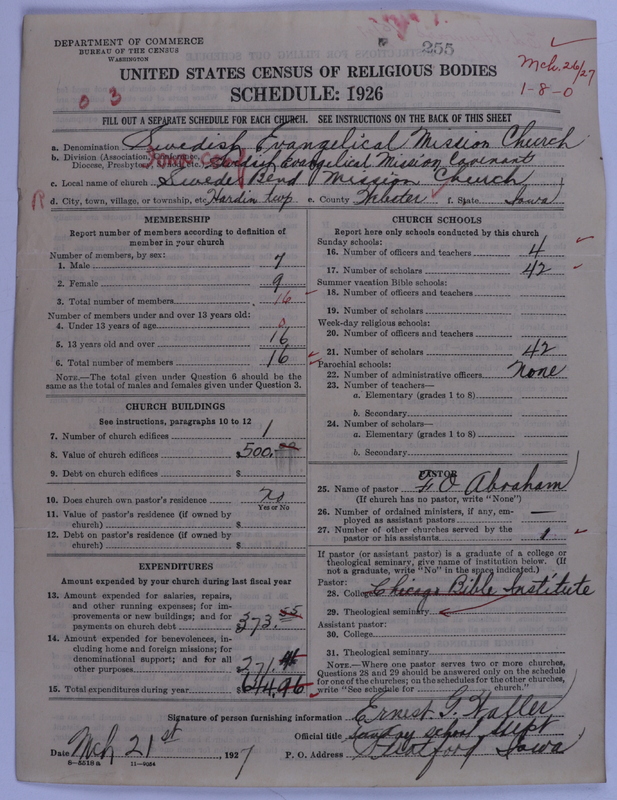 DEPARTMENT OF COMMERCE
BUREAU OF THE CENSUS
WASHINGTON
255
Mch. 26/27
1-8-0
UNITED STATES CENSUS OF RELIGIOUS BODIES
SCHEDULE: 1926
0 3
FILL OUT A SEPARATE SCHEDULE FOR EACH CHURCH. SEE INSTRUCTIONS ON THE BACK OF THIS SHEET
a. Denomination Swedish Evangelical Mission Church
b. Division (Association, Conference,
Diocese, Presbytery, Synod, etc.) Swedish Evangelical Mission Covenant
c. Local name of church Swede Bend Mission Church
d. City, town, village, or township, etc. Hardin twp e. County Webster f. State Iowa
MEMBERSHIP
Report number of members according to definition of
member in your church
Number of members, by sex:
1. Male 7
2. Female 9
3. Total number of members 16
Number of members under and over 13 years old:
4. Under 13 years of age 0
5. 13 years old and over 16
6. Total number of members 16
NOTE.—The total given under Question 6 should be the
same as the total of males and females given under Question 3.
CHURCH BUILDINGS
See instructions, paragraphs 10 to 12
7. Number of church edifices 1
8. Value of church edifices $500.00
9. Debt on church edifices $
10. Does church own pastor's residence no
Yes or No
11. Value of pastor's residence (if owned by
church) $
12. Debt on pastor's residence (if owned by
church) $
EXPENDITURES
Amount expended by your church during last fiscal year
13. Amount expended for salaries, repairs,
and other running expenses; for im-
provements or new buildings; and for
payments on church debt $373.55
14. Amount expended for benevolences, in-
cluding home and foreign missions; for
denominational support; and for all
other purposes $271.41
15. Total expenditures during year $644.96
CHURCH SCHOOLS
Report here only schools conducted by this church
Sunday schools:
16. Number of officers and teachers 4
17. Number of scholars 42
Summer vacation Bible schools:
18. Number of officers and teachers
19. Number of scholars
Week-day religious schools:
20. Number of officers and teachers
21. Number of scholars 42
Parochial schools:
22. Number of administrative officers none
23. Number of teachers—
a. Elementary (grades 1 to 8)
b. Secondary
24. Number of scholars—
a. Elementary (grades 1 to 8)
b. Secondary
PASTOR
25. Name of pastor F O Abraham
(If church has no pastor, write "None")
26. Number of ordained ministers, if any, em-
ployed as assistant pastors
27. Number of other churches served by the
pastor or his assistants 1
If pastor (or assistant pastor) is a graduate of a college or
theological seminary, give name of institution below. (If
not a graduate, write "No" in the space indicated.)
Pastor:
28. College Chicago Bible Institute
29. Theological seminary
Assistant pastor:
30. College
31. Theological seminary
NOTE.—Where one pastor serves two or more churches,
Questions 28 and 29 should be answered only on the schedule
for one of the churches; on the schedules for the other churches,
write "See schedule for church."
Signature of person furnishing information Ernest G. Waller
Official title Sunday school supt
Date Mch 21st, 1927 P. O. Address Stratford Iowa
8—5518a 11—9054